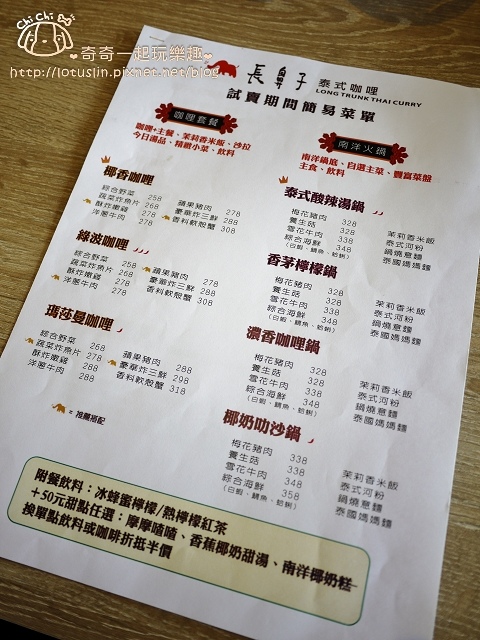 Chi Chi Der
♥奇奇一起玩樂趣♥
http://lotuslin.pixnet.net/blog
長鼻子 泰式咖哩
LONG TRUNK THAI CURRY
試賣期間簡易菜單
咖哩套餐
咖哩+主餐、茉莉香米飯、沙拉
今日湯品、精緻小菜、飲料
椰香咖哩
綜合野菜 258
蔬菜炸魚片 268
酥炸嫩雞 278
洋蔥牛肉 278
蘋果豬肉 278
豪華炸三鮮 288
香料軟殼蟹 308
綠波咖哩
綜合野菜 258
蔬菜炸魚片 268
酥炸嫩雞 278
洋蔥牛肉 278
蘋果豬肉 278
豪華炸三鮮 288
香料軟殼蟹 308
瑪莎曼咖哩
綜合野菜 268
蔬菜炸魚片 278
酥炸嫩雞 288
洋蔥牛肉 288
蘋果豬肉 288
豪華炸三鮮 298
香料軟殼蟹 318
= 推薦搭配
南洋火鍋
南洋鍋底、自選主菜、豐富菜盤
主食、飲料
泰式酸辣湯鍋
梅花豬肉 328
養生菇 328
雪花牛肉 338
綜合海鮮 348
(白蝦、鯛魚、蛤蜊)
茉莉香米飯
泰式河粉
鍋燒意麵
泰國媽媽麵
香茅檸檬鍋
梅花豬肉 328
養生菇 328
雪花牛肉 338
綜合海鮮 348
(白蝦、鯛魚、蛤蜊)
茉莉香米飯
泰式河粉
鍋燒意麵
泰國媽媽麵
濃香咖哩鍋
梅花豬肉 328
養生菇 328
雪花牛肉 338
綜合海鮮 348
(白蝦、鯛魚、蛤蜊)
茉莉香米飯
泰式河粉
鍋燒意麵
泰國媽媽麵
椰奶叻沙鍋
梅花豬肉 338
養生菇 338
雪花牛肉 348
綜合海鮮 358
(白蝦、鯛魚、蛤蜊)
茉莉香米飯
泰式河粉
鍋燒意麵
泰國媽媽麵
附餐飲料:冰蜂蜜檸檬/熱檸檬紅茶
+50元甜點任選:摩摩喳喳、香蕉椰奶甜湯、南洋椰奶糕
換單點飲料或咖啡折抵半價